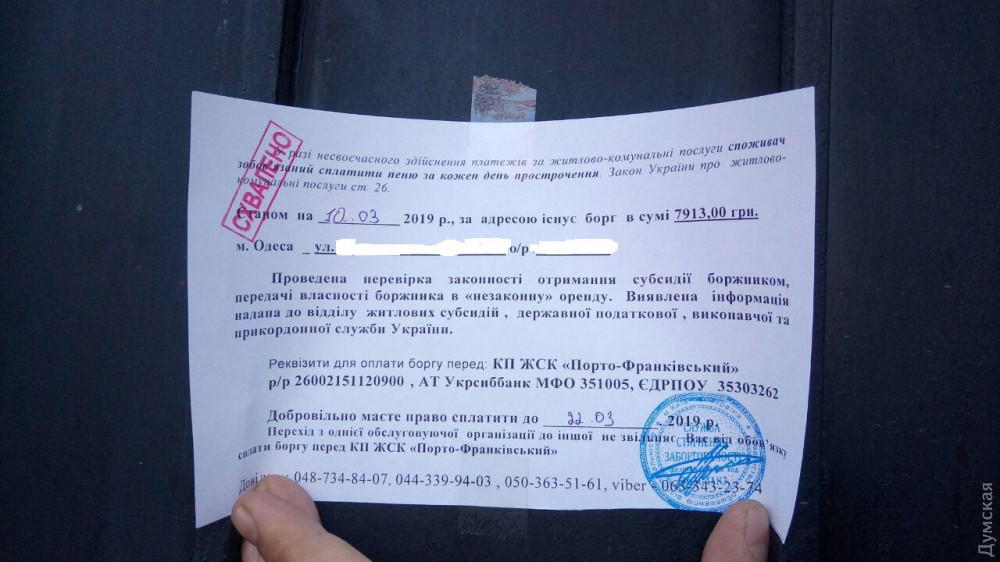 разі несвоєчасного здійснення платежів за житлово-комунальні послуги споживач
зобов'язаний сплатити пеню за кожен день прострочення. Закон України про житлово-
комунальні послуги ст. 26.
СХВАЛЕНО
Станом на 10.03 2019 р., за адресою існує борг в сумі 7913,00 грн.
м. Одеса _ ул. о/р
Проведена перевірка законності отримання субсидії боржником,
передачі власності боржника в «незаконну» оренду. Виявлена інформація
надана до відділу житлових субсидій , державної податкової , виконавчої та
прикордонної служби України.
Реквізити для оплати боргу перед: КП ЖСК «Порто-Франківський»
р/р 26002151120900 , АТ Укрсиббанк МФО 351005, ЄДРПОУ 35303262
Добровільно маєте право сплатити до 22.03 , 2019 р.
Перехід з однієї обслуговуючої організації до іншої не звільняє Вас від обов'язку
сплати боргу перед КП ЖСК «Порто-Франківський»
048-734-84-07, 044-339-94-03 , 050-363-51-61, viber 063-343-23-74
СЛУЖБА
СТЯГНЕННЯ
ЗАБОРГОВАНОСТІ
Думская